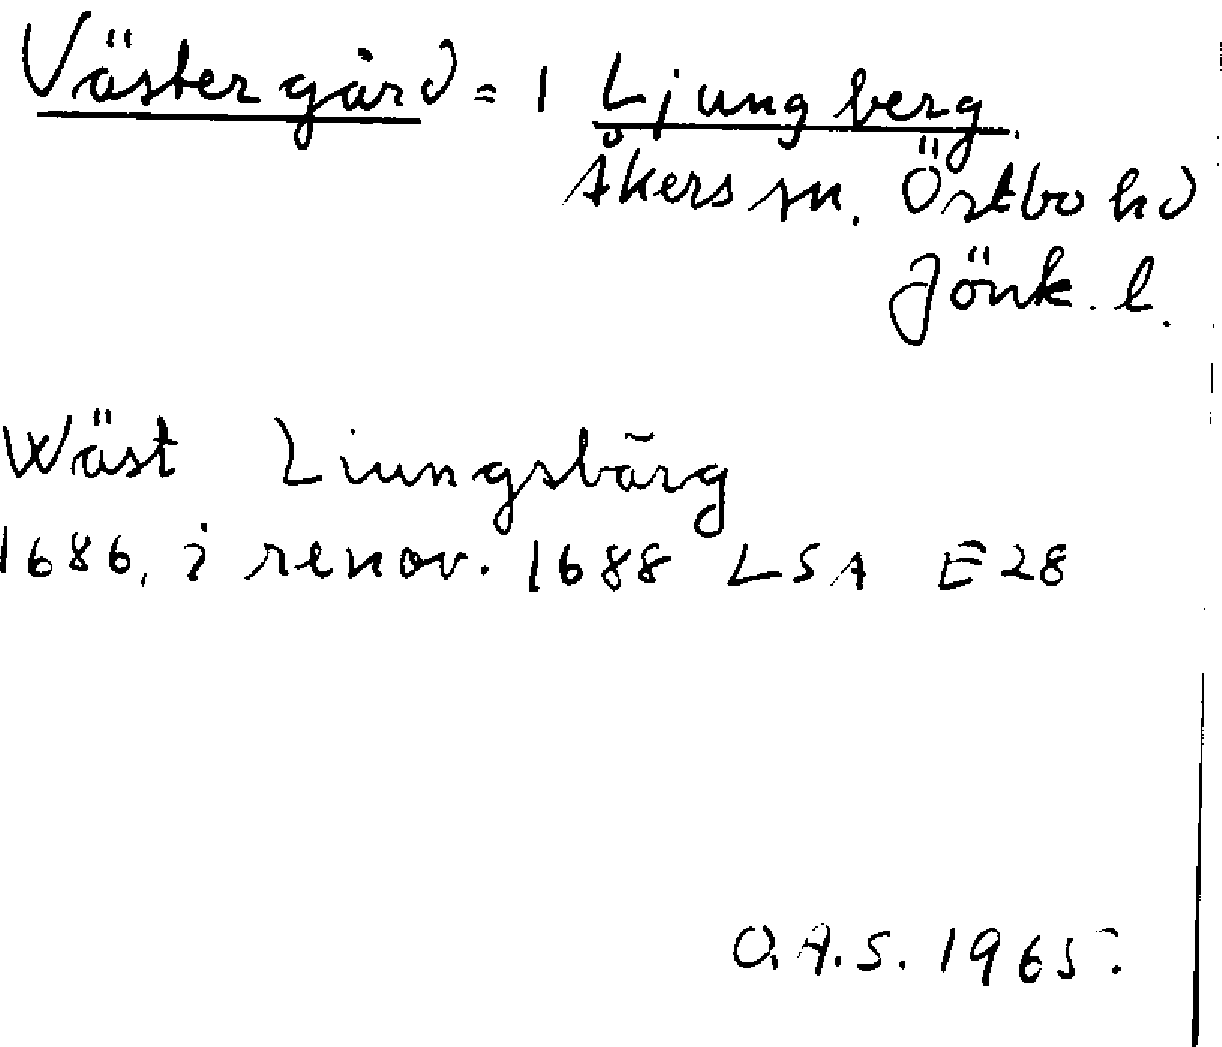 Västergård = 1 Ljungberg
Åkers sn. Östbo hd
Jönk. l.
Wäst Liungsbärg
1686, i renov. 1688 LSA E28
O.A.S. 1965.